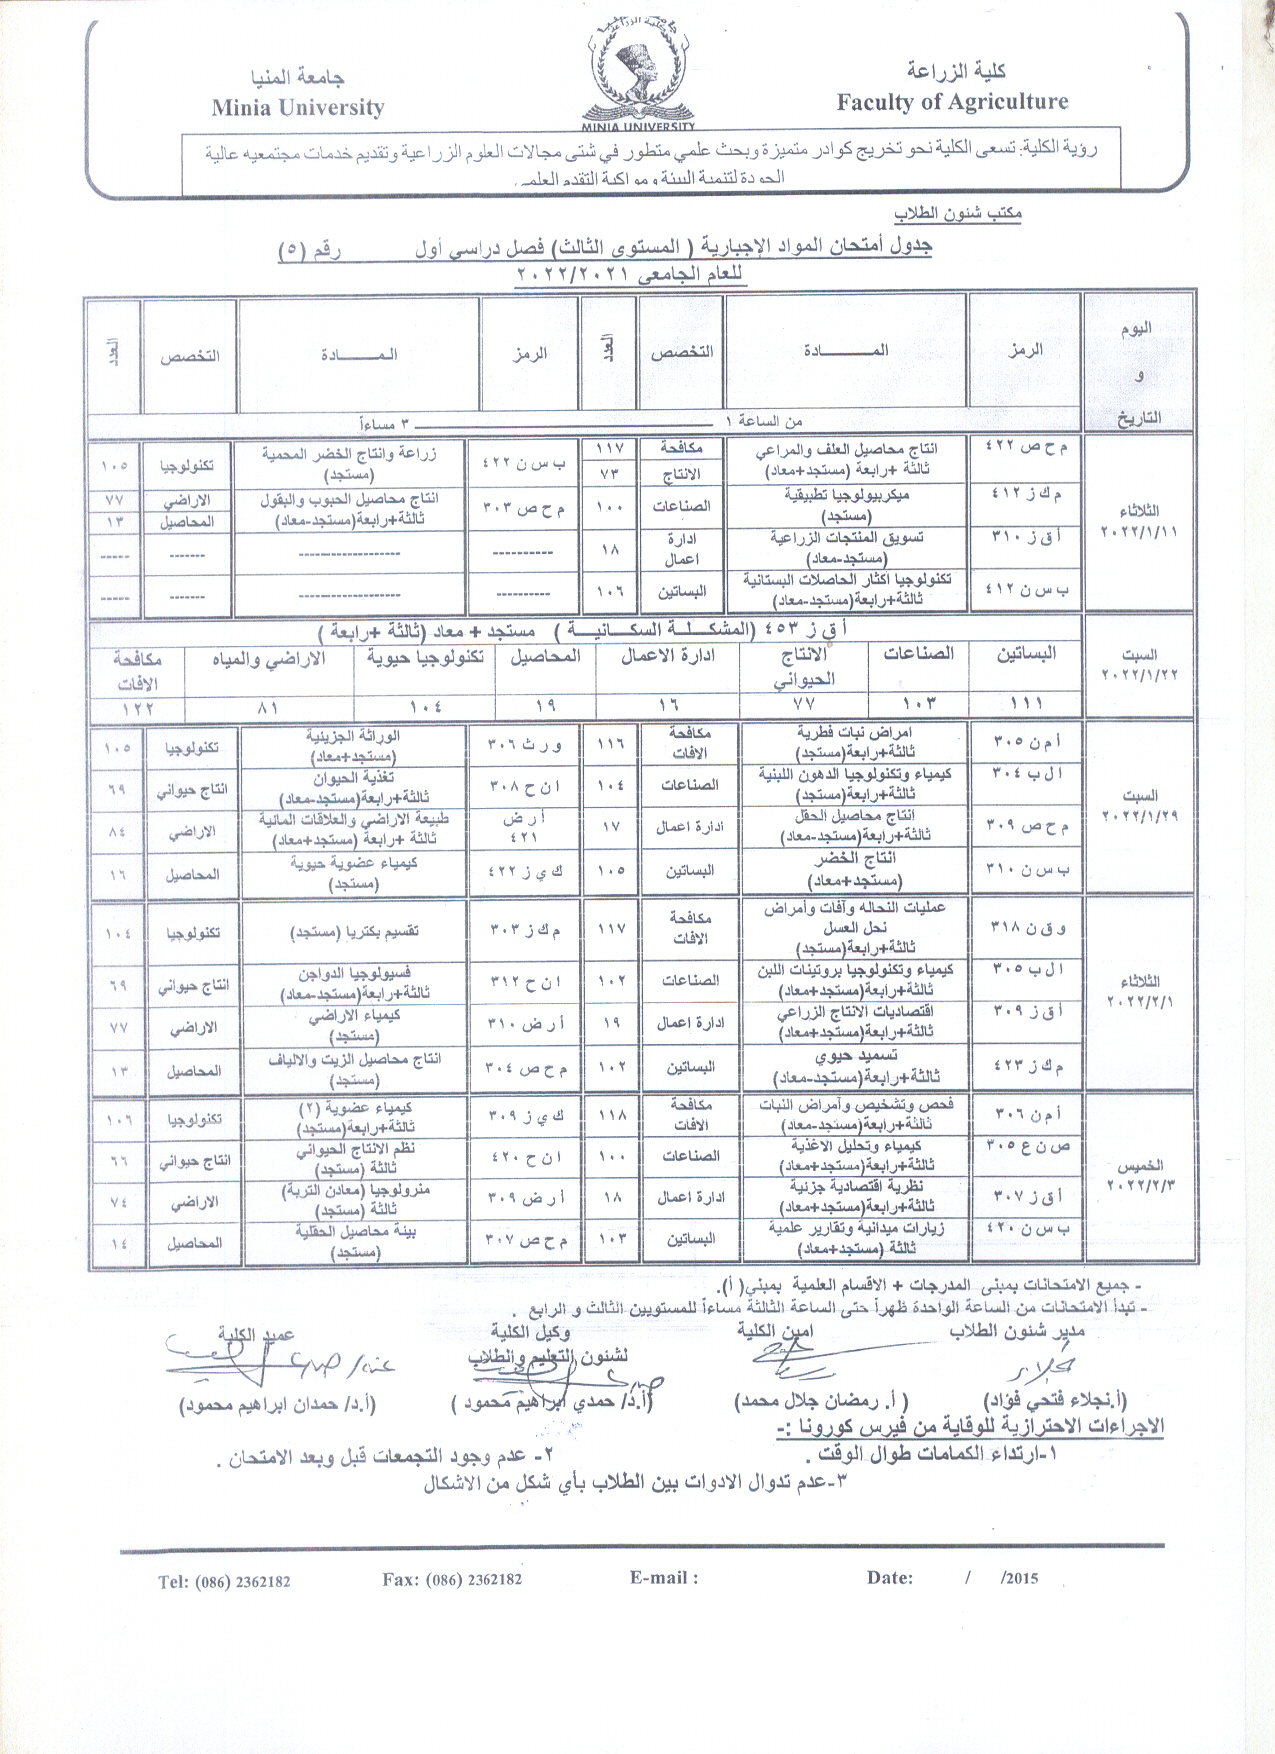 كلية الزراعة
Faculty of Agriculture
جامعة المنيا
Minia University
MINIA UNIVERSITY
رؤية الكلية: تسعى الكلية نحو تخريج كوادر متميزة وبحث علمي متطور في شتى مجالات العلوم الزراعية وتقديم خدمات مجتمعيه عالية
الجودة لتنمية البيئة ومواكبة التقدم العلمي.
مكتب شئون الطلاب
جدول أمتحان المواد الإجبارية ( المستوى الثالث) فصل دراسي أول رقم (٥)
للعام الجامعى ٢٠٢٢/٢٠٢١
اليوم و التاريخ | الرمز | المـــــــادة | التخصص | العدد | الرمز | المـــــــادة | التخصص | العدد
من الساعة ١ ــــــــــــــــ ٣ مساءاً
الثلاثاء ٢٠٢٢/١/١١
م ح ص ٤٢٢ | انتاج محاصيل العلف والمراعي ثالثة +رابعة (مستجد+معاد) | مكافحة ١١٧ | الانتاج ٧٣ | ب س ن ٤٢٢ | زراعة وانتاج الخضر المحمية (مستجد) | تكنولوجيا | ١٠٥
م ك ز ٤١٢ | ميكربيولوجيا تطبيقية (مستجد) | الصناعات | ١٠٠ | م ح ص ٣٠٣ | انتاج محاصيل الحبوب والبقول ثالثة+رابعة(مستجد-معاد) | الاراضي ٧٧ | المحاصيل ١٣
أ ق ز ٣١٠ | تسويق المنتجات الزراعية (مستجد-معاد) | ادارة اعمال | ١٨ | ---------- | ------------------- | ------- | -----
ب س ن ٤١٢ | تكنولوجيا اكثار الحاصلات البستانية ثالثة+رابعة(مستجد-معاد) | البساتين | ١٠٦ | --------- | ------------------- | ------- | -----
السبت ٢٠٢٢/١/٢٢
أ ق ز ٤٥٣ (المشكـلـة السكـانيـة ) مستجد + معاد (ثالثة +رابعة )
البساتين | الصناعات | الانتاج الحيواني | ادارة الاعمال | المحاصيل | تكنولوجيا حيوية | الاراضي والمياه | مكافحة الافات
١١١ | ١٠٣ | ٧٧ | ١٦ | ١٩ | ١٠٤ | ٨١ | ١٢٢
السبت ٢٠٢٢/١/٢٩
أ م ن ٣٠٥ | امراض نبات فطرية ثالثة+رابعة(مستجد) | مكافحة الافات | ١١٦ | و ر ث ٣٠٦ | الوراثة الجزيئية (مستجد+معاد) | تكنولوجيا | ١٠٥
ال ب ٣٠٤ | كيمياء وتكنولوجيا الدهون اللبنية ثالثة+رابعة(مستجد) | الصناعات | ١٠٤ | ان ح ٣٠٨ | تغذية الحيوان ثالثة+رابعة(مستجد-معاد) | انتاج حيواني | ٦٩
م ح ص ٣٠٩ | انتاج محاصيل الحقل ثالثة+رابعة(مستجد-معاد) | ادارة اعمال | ١٧ | أ ر ض ٤٢١ | طبيعة الاراضي والعلاقات المائية ثالثة +رابعة (مستجد+معاد) | الاراضي | ٨٤
ب س ن ٣١٠ | انتاج الخضر (مستجد+معاد) | البساتين | ١٠٥ | ك ي ز ٤٢٢ | كيمياء عضوية حيوية (مستجد) | المحاصيل | ١٦
الثلاثاء ٢٠٢٢/٢/١
و ق ن ٣١٨ | عمليات النحاله وآفات وأمراض نحل العسل ثالثة+رابعة(مستجد) | مكافحة الافات | ١١٧ | م ك ز ٣٠٣ | تقسيم بكتريا (مستجد) | تكنولوجيا | ١٠٤
ال ب ٣٠٥ | كيمياء وتكنولوجيا بروتينات اللبن ثالثة+رابعة(مستجد+معاد) | الصناعات | ١٠٢ | ان ح ٣١٢ | فسيولوجيا الدواجن ثالثة+رابعة(مستجد-معاد) | انتاج حيواني | ٦٩
أ ق ز ٣٠٩ | اقتصاديات الانتاج الزراعي ثالثة+رابعة(مستجد+معاد) | ادارة اعمال | ١٩ | أ ر ض ٣١٠ | كيمياء الاراضي (مستجد) | الاراضي | ٧٧
م ك ز ٤٢٣ | تسميد حيوي ثالثة+رابعة(مستجد-معاد) | البساتين | ١٠٢ | م ح ص ٣٠٤ | انتاج محاصيل الزيت والالياف (مستجد) | المحاصيل | ١٣
الخميس ٢٠٢٢/٢/٣
أ م ن ٣٠٦ | فحص وتشخيص وأمراض النبات ثالثة+رابعة(مستجد-معاد) | مكافحة الافات | ١١٨ | ك ي ز ٣٠٩ | كيمياء عضوية (٢) ثالثة+رابعة(مستجد) | تكنولوجيا | ١٠٦
ص ن ع ٣٠٥ | كيمياء وتحليل الاغذية ثالثة+رابعة(مستجد+معاد) | الصناعات | ١٠٠ | ان ح ٤٢٠ | نظم الانتاج الحيواني ثالثة (مستجد) | انتاج حيواني | ٦٦
أ ق ز ٣٠٧ | نظرية اقتصادية جزئية ثالثة+رابعة(مستجد+معاد) | ادارة اعمال | ١٨ | أ ر ض ٣٠٩ | منرولوجيا (معادن التربة) ثالثة (مستجد) | الاراضي | ٧٤
ب س ن ٤٢٠ | زيارات ميدانية وتقارير علمية ثالثة (مستجد+معاد) | البساتين | ١٠٣ | م ح ص ٣٠٧ | بيئة محاصيل الحقلية (مستجد) | المحاصيل | ١٤
- جميع الامتحانات بمبنى المدرجات + الاقسام العلمية بمبنى( أ).
- تبدأ الامتحانات من الساعة الواحدة ظهراً حتى الساعة الثالثة مساءاً للمستويين الثالث و الرابع .
مدير شئون الطلاب
امين الكلية
وكيل الكلية
لشئون التعليم والطلاب
عميد الكلية
(أ.نجلاء فتحي فؤاد)
( أ. رمضان جلال محمد)
(أ.د/ حمدي ابراهيم محمود )
(أ.د/ حمدان ابراهيم محمود)
الاجراءات الاحترازية للوقاية من فيرس كورونا :-
١-ارتداء الكمامات طوال الوقت .
٢- عدم وجود التجمعات قبل وبعد الامتحان .
٣-عدم تدوال الادوات بين الطلاب بأي شكل من الاشكال
Tel: (086) 2362182 Fax: (086) 2362182 E-mail : Date: / /2015